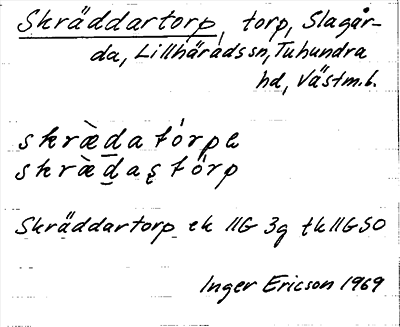 Skräddartorp, torp, Slagår-
da, Lillhärads sn, Tuhundra
hd, Västm.l.
skræ̀d̲atórpe
skræ̀d̲aʂtórp
Skräddartorp ek 11G 3g tk 11G SO
Inger Ericson 1969